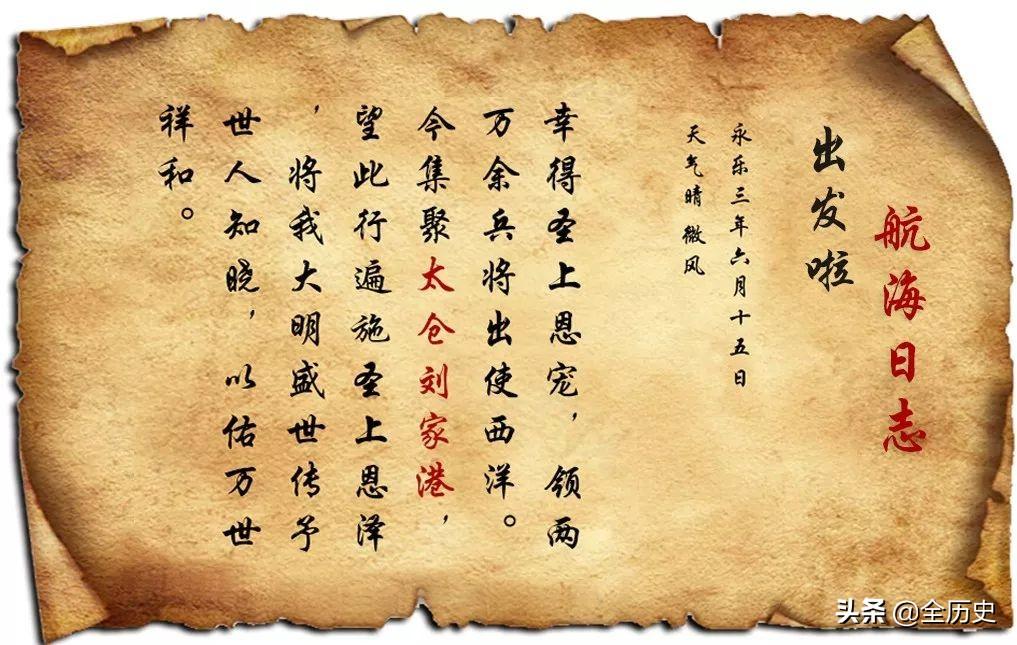 航海日志
出发啦
永乐三年六月十五日
天气晴 微风
幸得圣上恩宠，领两
万余兵将出使西洋。
今集聚太仓刘家港，
望此行遍施圣上恩泽
，将我大明盛世传予
世人知晓，以佑万世
祥和。
头条 @全历史